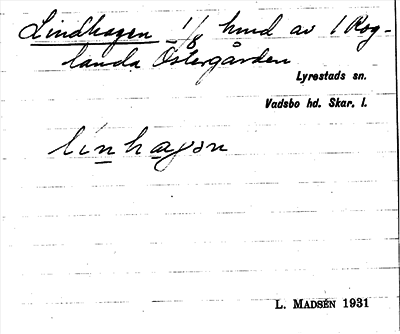 Lindhagen 1/8 hmd av 1 Rog-
landa Östergården
Lyrestads sn.
Vadsbo hd. Skar. l.
linhagən
L. MADSÉN 1931